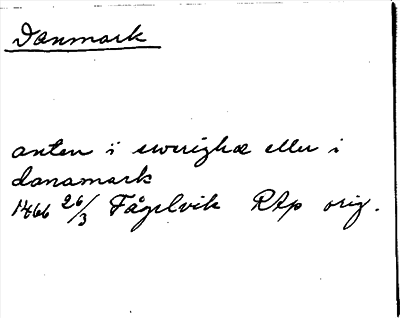 Danmark
anten i swerighæ eller i
danamark
1466 26/3 Fågelvik RAp orig.